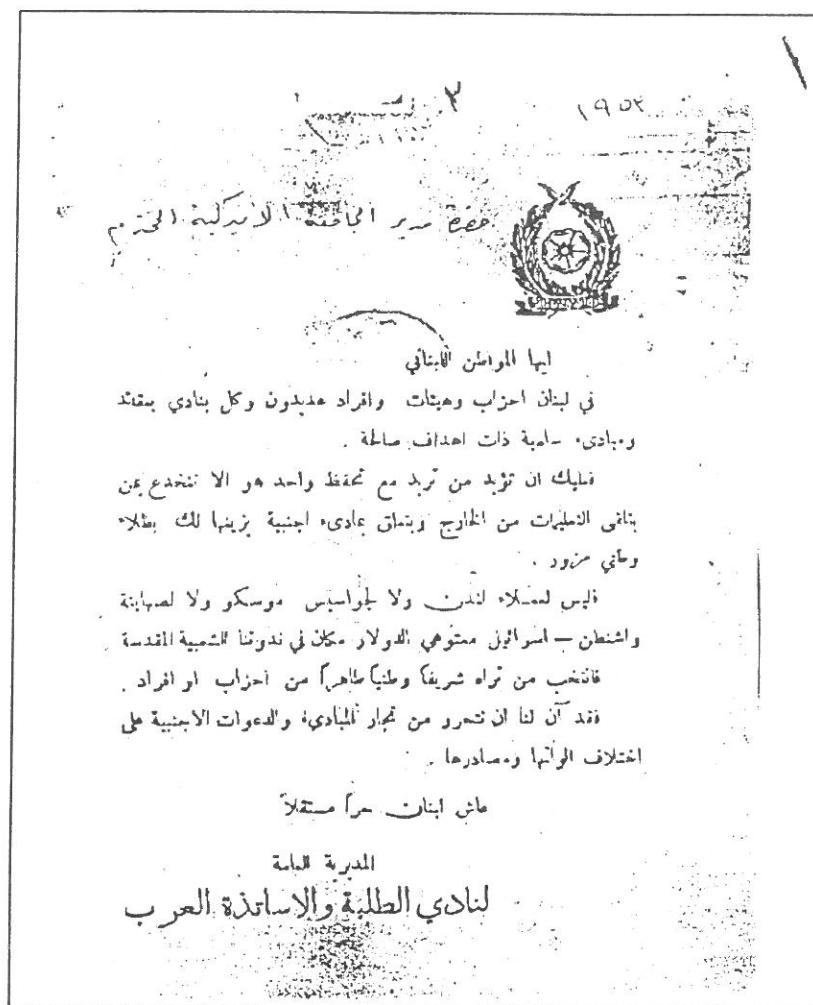 ١٩٥٣
٣
حضرة مدير الجامعة الاميركية المحترم
ايها المواطن اللبناني
في لبنان احزاب وهيئات وافراد عديدون وكل ينادي بعقائد
ومبادىء سامية ذات اهداف صالحة .
فعليك ان تؤيد من تريد مع تحفظ واحد هو الا تنخدع بمن
يتلقى التعليمات من الخارج ويتعلق بمبادىء اجنبية يزينها لك بطلاء
وطني مزور .
فليس لعملاء لندن ولا لجواسيس موسكو ولا لصهاينة
واشنطن – اسرائيل معتوهي الدولار مكان في ندوتنا الشعبية المقدسة
فانتخب من تراه شريفاً وطنياً طاهراً من احزاب او افراد .
فقد آن لنا ان نتحرر من تجار المبادىء والدعوات الاجنبية على
اختلاف الوانها ومصادرها .
عاش لبنان حراً مستقلاً
المديرية العامة
لنادي الطلبة والاساتذة العرب